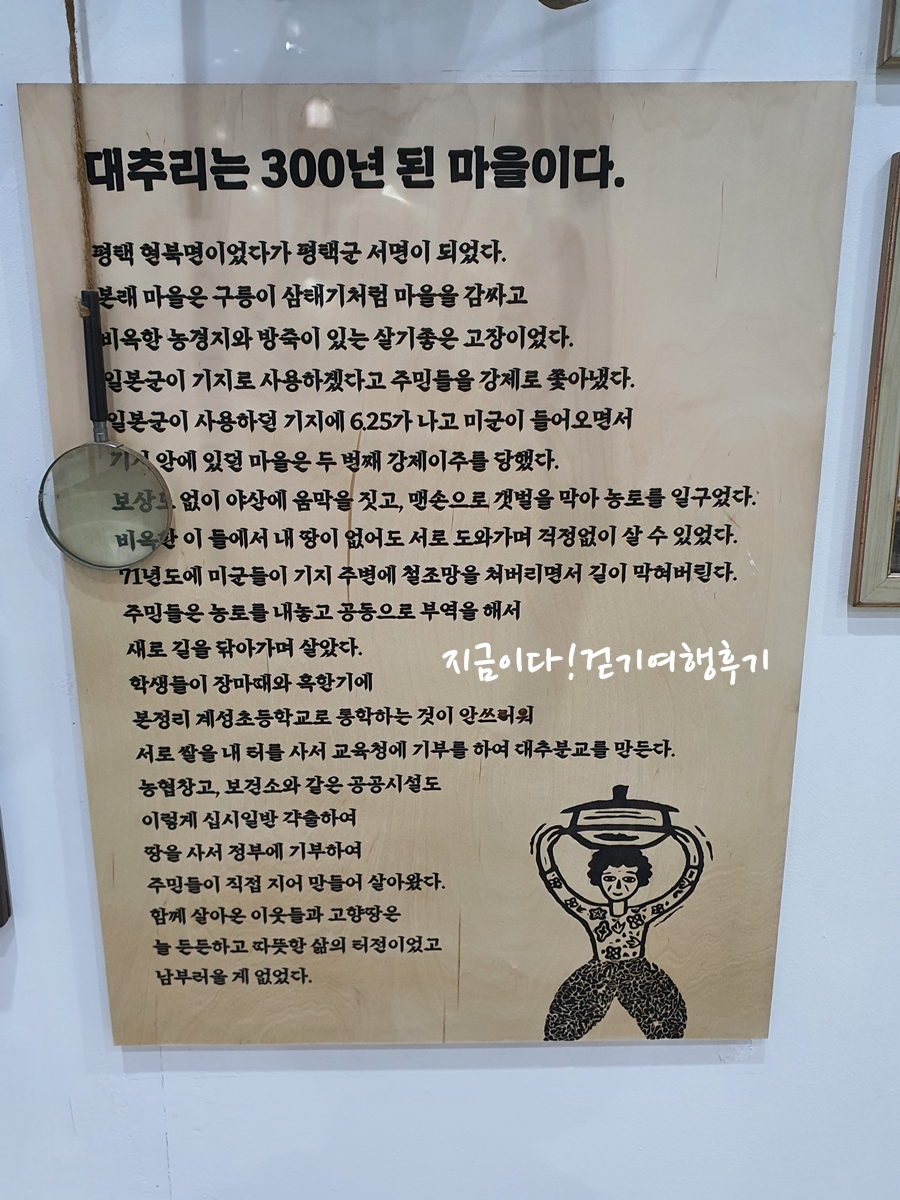 대추리는 300년 된 마을이다.
평택 현북면이었다가 평택군 서면이 되었다.
본래 마을은 구릉이 삼태기처럼 마을을 감싸고
비옥한 농경지와 방죽이 있는 살기좋은 고장이었다.
일본군이 기지로 사용하겠다고 주민들을 강제로 쫓아냈다.
일본군이 사용하던 기지에 6.25가 나고 미군이 들어오면서
기지 안에 있던 마을은 두 번째 강제이주를 당했다.
보상도 없이 야산에 움막을 짓고, 맨손으로 갯벌을 막아 농토를 일구었다.
비옥한 이 들에서 내 땅이 없어도 서로 도와가며 걱정없이 살 수 있었다.
71년도에 미군들이 기지 주변에 철조망을 쳐버리면서 길이 막혀버린다.
주민들은 농토를 내놓고 공동으로 부역을 해서
새로 길을 닦아가며 살았다.
지금이다!걷기여행후기
학생들이 장마때와 혹한기에
본정리 계성초등학교로 통학하는 것이 안쓰러워
서로 쌀을 내 터를 사서 교육청에 기부를 하여 대추분교를 만든다.
농협창고, 보건소와 같은 공공시설도
이렇게 십시일반 갹출하여
땅을 사서 정부에 기부하여
주민들이 직접 지어 만들어 살아왔다.
함께 살아온 이웃들과 고향땅은
늘 든든하고 따뜻한 삶의 터전이었고
남부러울 게 없었다.